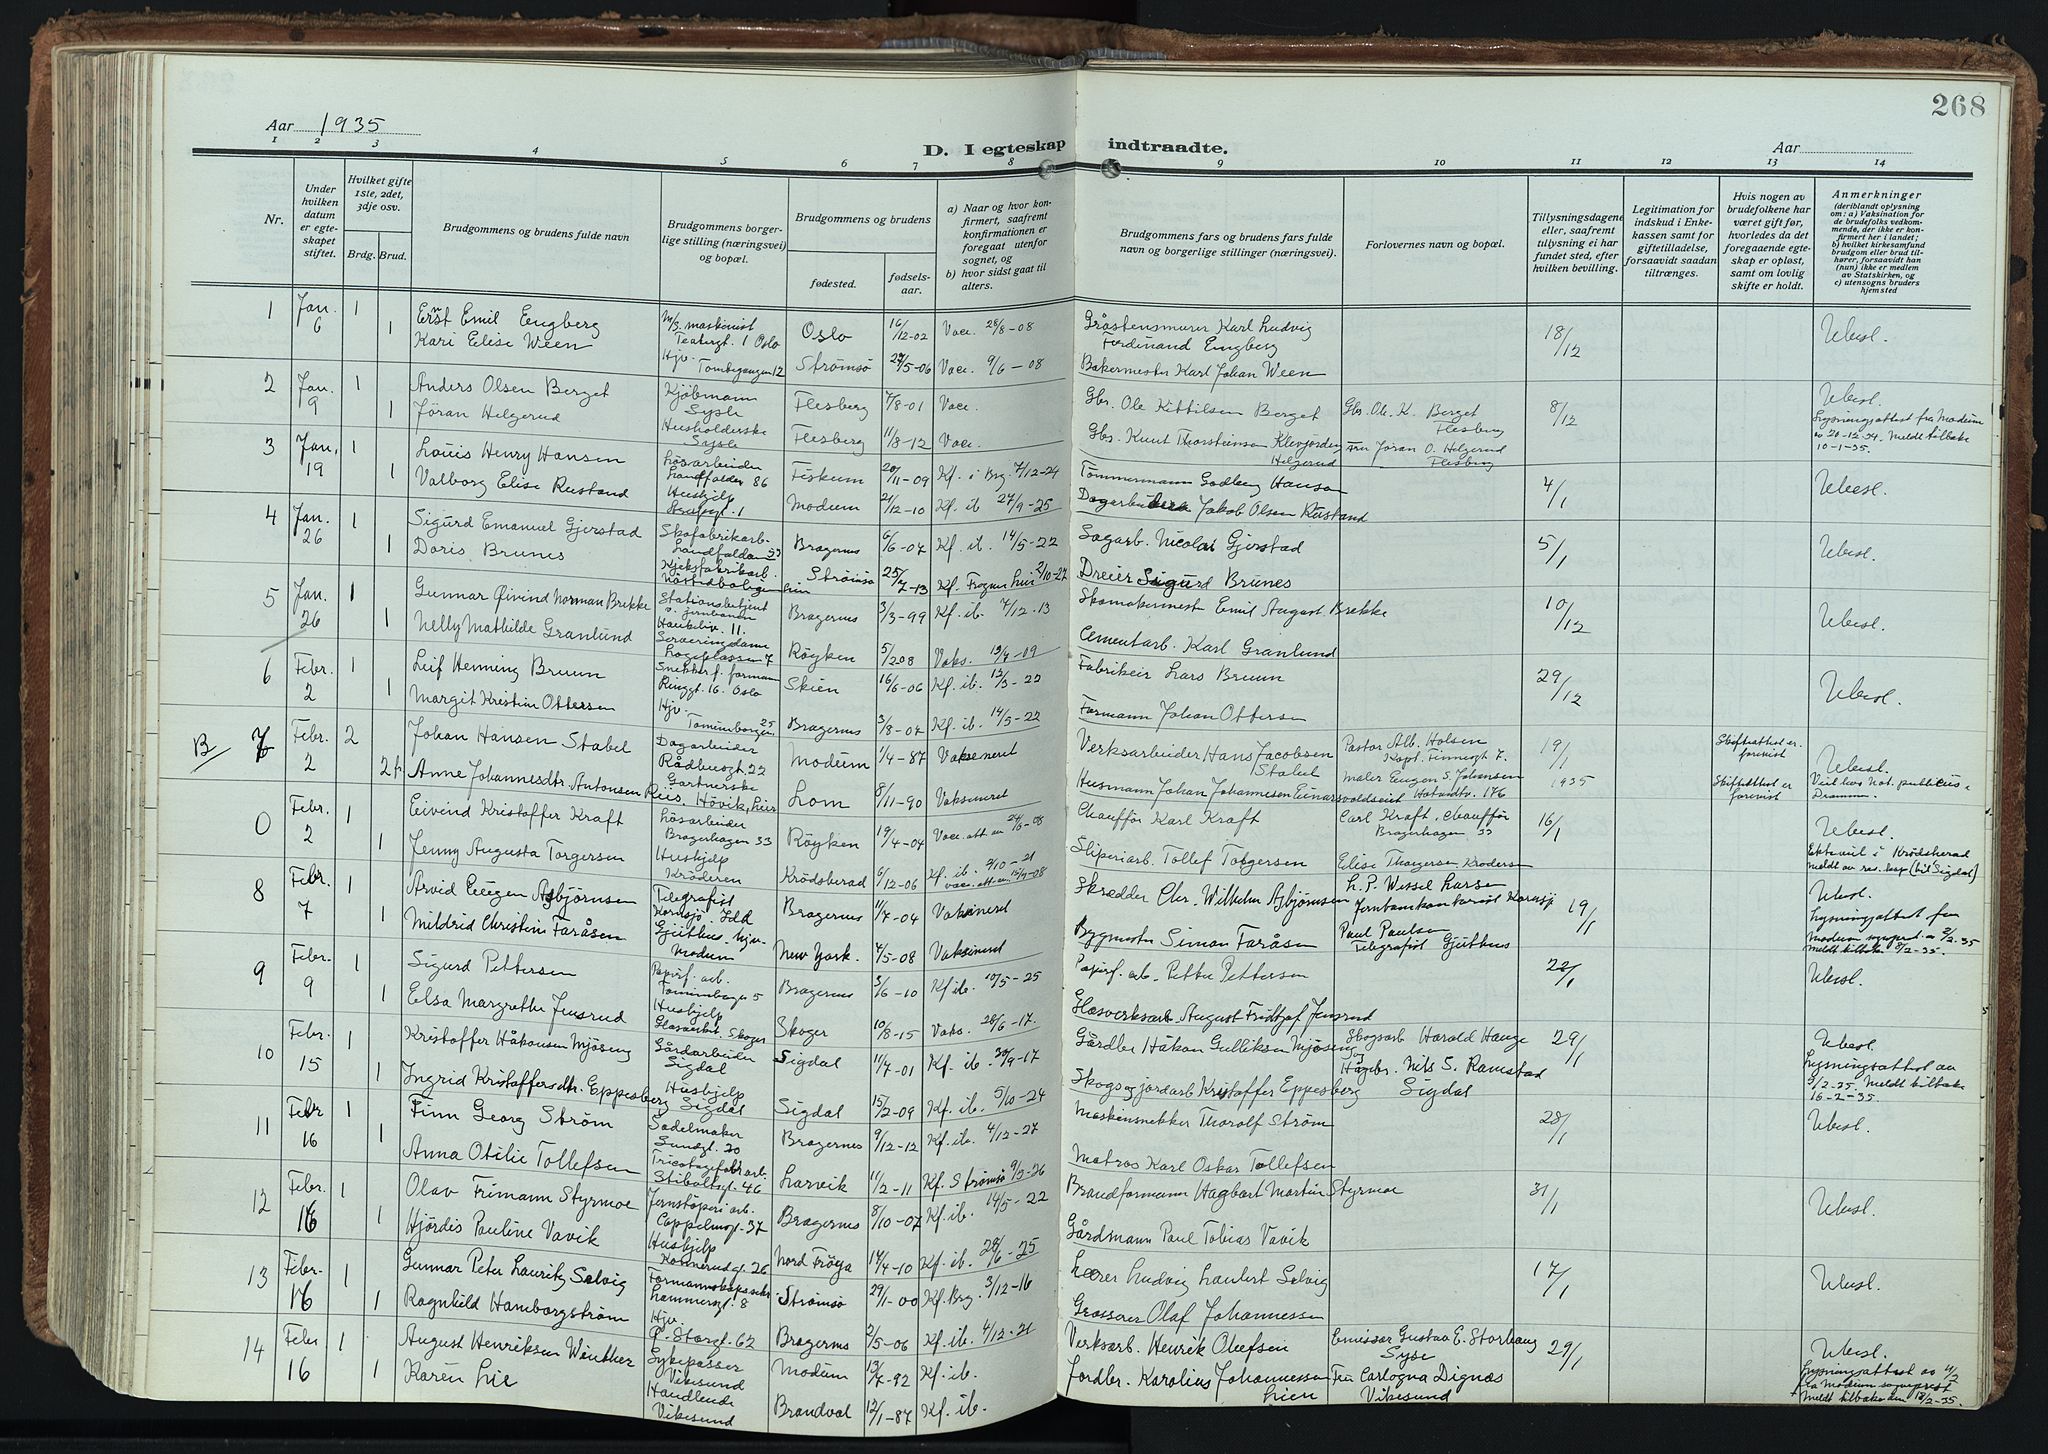 268
Aar 1935
D. I egteskap indtraadte.
Aar
1 2 3 4 5 6 7 8 9 10 11 12 13 14
Nr.
Under hvilken datum er egteskapet stiftet.
Hvilket gifte 1ste, 2det, 3dje osv.
Brdg. Brud.
Brudgommens og brudens fulde navn
Brudgommens borgerlige stilling (næringsvei) og bopæl.
Brudgommens og brudens
fødested.
fødselsaar.
a) Naar og hvor konfirmert, saafremt konfirmationen er foregaat utenfor sognet, og
b) hvor sidst gaat til alters.
Brudgommens fars og brudens fars fulde navn og borgerlige stillinger (næringsvei).
Forlovernes navn og bopæl.
Tillysningsdagene eller, saafremt tillysning ei har fundet sted, efter hvilken bevilling.
Legitimation for indskud i Enkekassen samt for giftetilladelse, forsaavidt saadan tiltrænges.
Hvis nogen av brudefolkene har været gift før, hvorledes da det foregaaende egteskap er opløst, samt om lovlig skifte er holdt.
Anmerkninger
(deriblandt oplysning om: a) Vaksination for de brudefolks vedkommende, der ikke er konfirmert her i landet; b) hvilket kirkesamfund brudgom eller brud tilhører, forsaavidt han (hun) ikke er medlem av Statskirken, og c) utensogns bruders hjemsted
1 Jan. 6 1 Ernst Emil Engberg M/S. maskinist Teatergt. 1 Oslo Oslo 16/12-02 Vacc. 28/8-08 Gråstensmurer Karl Ludvig Ferdinand Engberg 18/12 Ubesl.
1 Kari Elise Ween Hjv. Strømsø Vacc. 9/6-08 Bakermester Karl Johan Ween
2 Jan. 9 1 Anders Olsen Berget Kjøbmann Sysle Flesberg 7/8-01 Vacc. Gbr. Ole Kittilsen Berget Gbr. Ole K. Berget Flesberg 8/12 Ubesl.
1 Jøran Helgerud Husholderske Sysle Flesberg 11/8-12 Vacc. Gbr. Knut Thorsteinsen Klevjorden Helgerud Jøran O. Helgerud Flesberg Lysningsattest fra Modum 20-12-34. Meldt tilbake 10-1-35.
3 Jan. 19 1 Louis Henry Hansen Løsarbeider Landfalden 86 Fiskum 20/11-09 Kf. i Brg. 7/12-24 Tømmermann Godberg Hansen 4/1 Ubesl.
1 Valborg Elise Rustand Hushjelp Modum 21/12-10 Kf. ib. 27/9-25 Dagarbeider Jakob Olsen Rustand
4 Jan. 26 1 Sigurd Emanuel Gjerstad Skofabrikarb. Landfalden 53 Bragernes 6/6-07 Kf. ib. 14/5-22 Sagarb. Nicolai Gjerstad 5/1 Ubesl.
1 Doris Brunes Kjeksfabrikarb. Strømsø 25/7-13 Kf. Frogner Lier 2/10-27 Dreier Sigurd Brunes
5 Jan. 26 1 Gunnar Øivind Norman Brekke Stationsbetjent v. jernbanen Haukeliv. 11. Bragernes 3/3-99 Kf. ib. 7/12-13 Skomakermest Emil August Brekke 10/12 Ubesl.
1 Nelly Mathilde Granlund Serveringsdame Logeplassen 7 Røyken 5/2 08 Vaks. 13/4-09 Cementarb. Karl Granlund
6 Febr. 2 1 Leif Henning Bruun Snekkerf. formann Ringgt. 16. Oslo Skien 16/6-06 Kf. ib. Fabrikeier Lars Bruun 29/12 Ubesl.
1 Margit Kristine Ottersen Hjv. Bragernes 3/8-04 Kf. ib. 14/5-22 Formann Johan Ottersen
B 7 Febr. 2 2 Johan Hansen Stabel Dagarbeider Rådhusgt. 22 Modum 1/4-87 Vaksineret Verksarbeider Hans Jacobsen Stabel Pastor Alb. Holsen Kapt. Finnesgt 7. 19/1 1935 Skifteattest er forevist Ubesl.
2 Anne Johannesdtr. Antonsen Reis, Høvik, Lier Gartnerske Lom 8/11-90 Vaksineret Husmann Johan Johannesen Maler Eugen S. Johansen 176 Skifteattest er forevist Viet hos Not. publicus i Drammen.
0 Febr. 2 1 Eivind Kristoffer Kraft Løsarbeider Bragerhagen 33 Røyken 19/4-04 Vacc. att. av 24/6-08 Chauffør Karl Kraft Carl Kraft, Chauffør Bragerhagen 33 16/1 Ubesl.
1 Jenny Augusta Torgersen Hushjelp Krøderen Krødsherad 6/12-06 Kf. ib. Sliperiarb. Tollef Torgersen Elise Thorgersen Krøderen
8 Febr. 7 1 Arvid Eugen Asbjørnsen Telegrafist Kornsjø, Idd Bragernes 11/7-04 Vaksineret Skredder Chr. Wilhelm Asbjørnsen L. P. Wessel Larsen Kornsjø 19/1 Ubesl.
1 Mildrid Christine Faråsen Gjuthus, Modum New York. 4/5-08 Vaksineret Bygmester Simon Faråsen Paul Paulsen Telegrafist Gjuthus Lysningsattest fra Modum 2/2-35 meldt tilbake 8/2-35.
9 Febr. 9 1 Sigurd Pettersen Papirf. arb. Bragernes 3/6-10 Kf. ib. 10/5-25 Papirf. arb. Petter Pettersen 22/1 Ubesl.
1 Elsa Margrethe Jensrud Hushjelp Skoger 10/8-15 Vaks. 28/6-17. Glasverksarb. August Fridtjof Jensrud
10 Febr. 15 1 Kristoffer Håkonsen Mjøseng Gårdarbeider Sigdal Sigdal 11/7-01 Kf. ib. 30/9-17 Gårdbr Håkon Gulliksen Mjøseng Skogsarb Harald Hauge 29/1 Ubesl.
1 Ingrid Kristoffersdtr. Eppesberg Hushjelp Sigdal Sigdal 15/2-09 Kf. ib. 5/10-24 Skogs og jordarb Kristoffer Eppesberg Nils S. Ramstad Sigdal Lysningsattest av 2/2-35. Meldt tilbake 16-2-35.
11 Febr 16 1 Finn Georg Strøm Sadelmaker Bragernes 9/12-12 Kf. ib. 4/12-27 Maskinsnekker Thorolf Strøm 28/1 Ubesl.
1 Anna Otilie Tollefsen Tricotagefabr. arb. Stiboltsgt. 46 Larvik 11/2-11 Kf. Strømsø 9/3-26 Matros Karl Oskar Tollefsen
12 Febr. 16 1 Olav Frimann Styrmoe Jernstøperi arb. Cappelensgt. 37 Bragernes 8/10-07 Kf. ib. 14/5-22 Brandformann Hagbart Martin Styrmoe 31/1 Ubesl.
1 Hjørdis Pauline Vavik Hushjelp Konnerudgt. 26 Nord Frøya 14/4-10 Kf. ib. 28/6-25 Gårdmann Paul Tobias Vavik
13 Febr. 16 1 Gunnar Peter Lauritz Solvig Lammersgt. 8 Strømsø 29/1-00 Kf. Brg. 3/12-16 Lærer Ludvig Laubert Solvig 17/1 Ubesl.
1 Ragnhild Hamborgstrøm Hjv. Storgt. 62 Bragernes 2/5-06 Kf. ib. 4/12-21 Grosserer Olaf Johannessen
14 Febr 16 1 August Henriksen Winther Sykepasser Vikesund Modum 13/7-92 Kf. ib. Verksarb. Henrik Olefsen Emissær Gustav E. Storhaug 29/1 Ubesl.
1 Karen Lie Handlende Vikesund Brandval 12/1-87 Kf. ib. Jordbr. Karolius Johannessen Lien Fru Carlogna Dignæs Vikesund Lysningsattest av 4/2 fra Modum Meldt tilbake den 18/2-35.